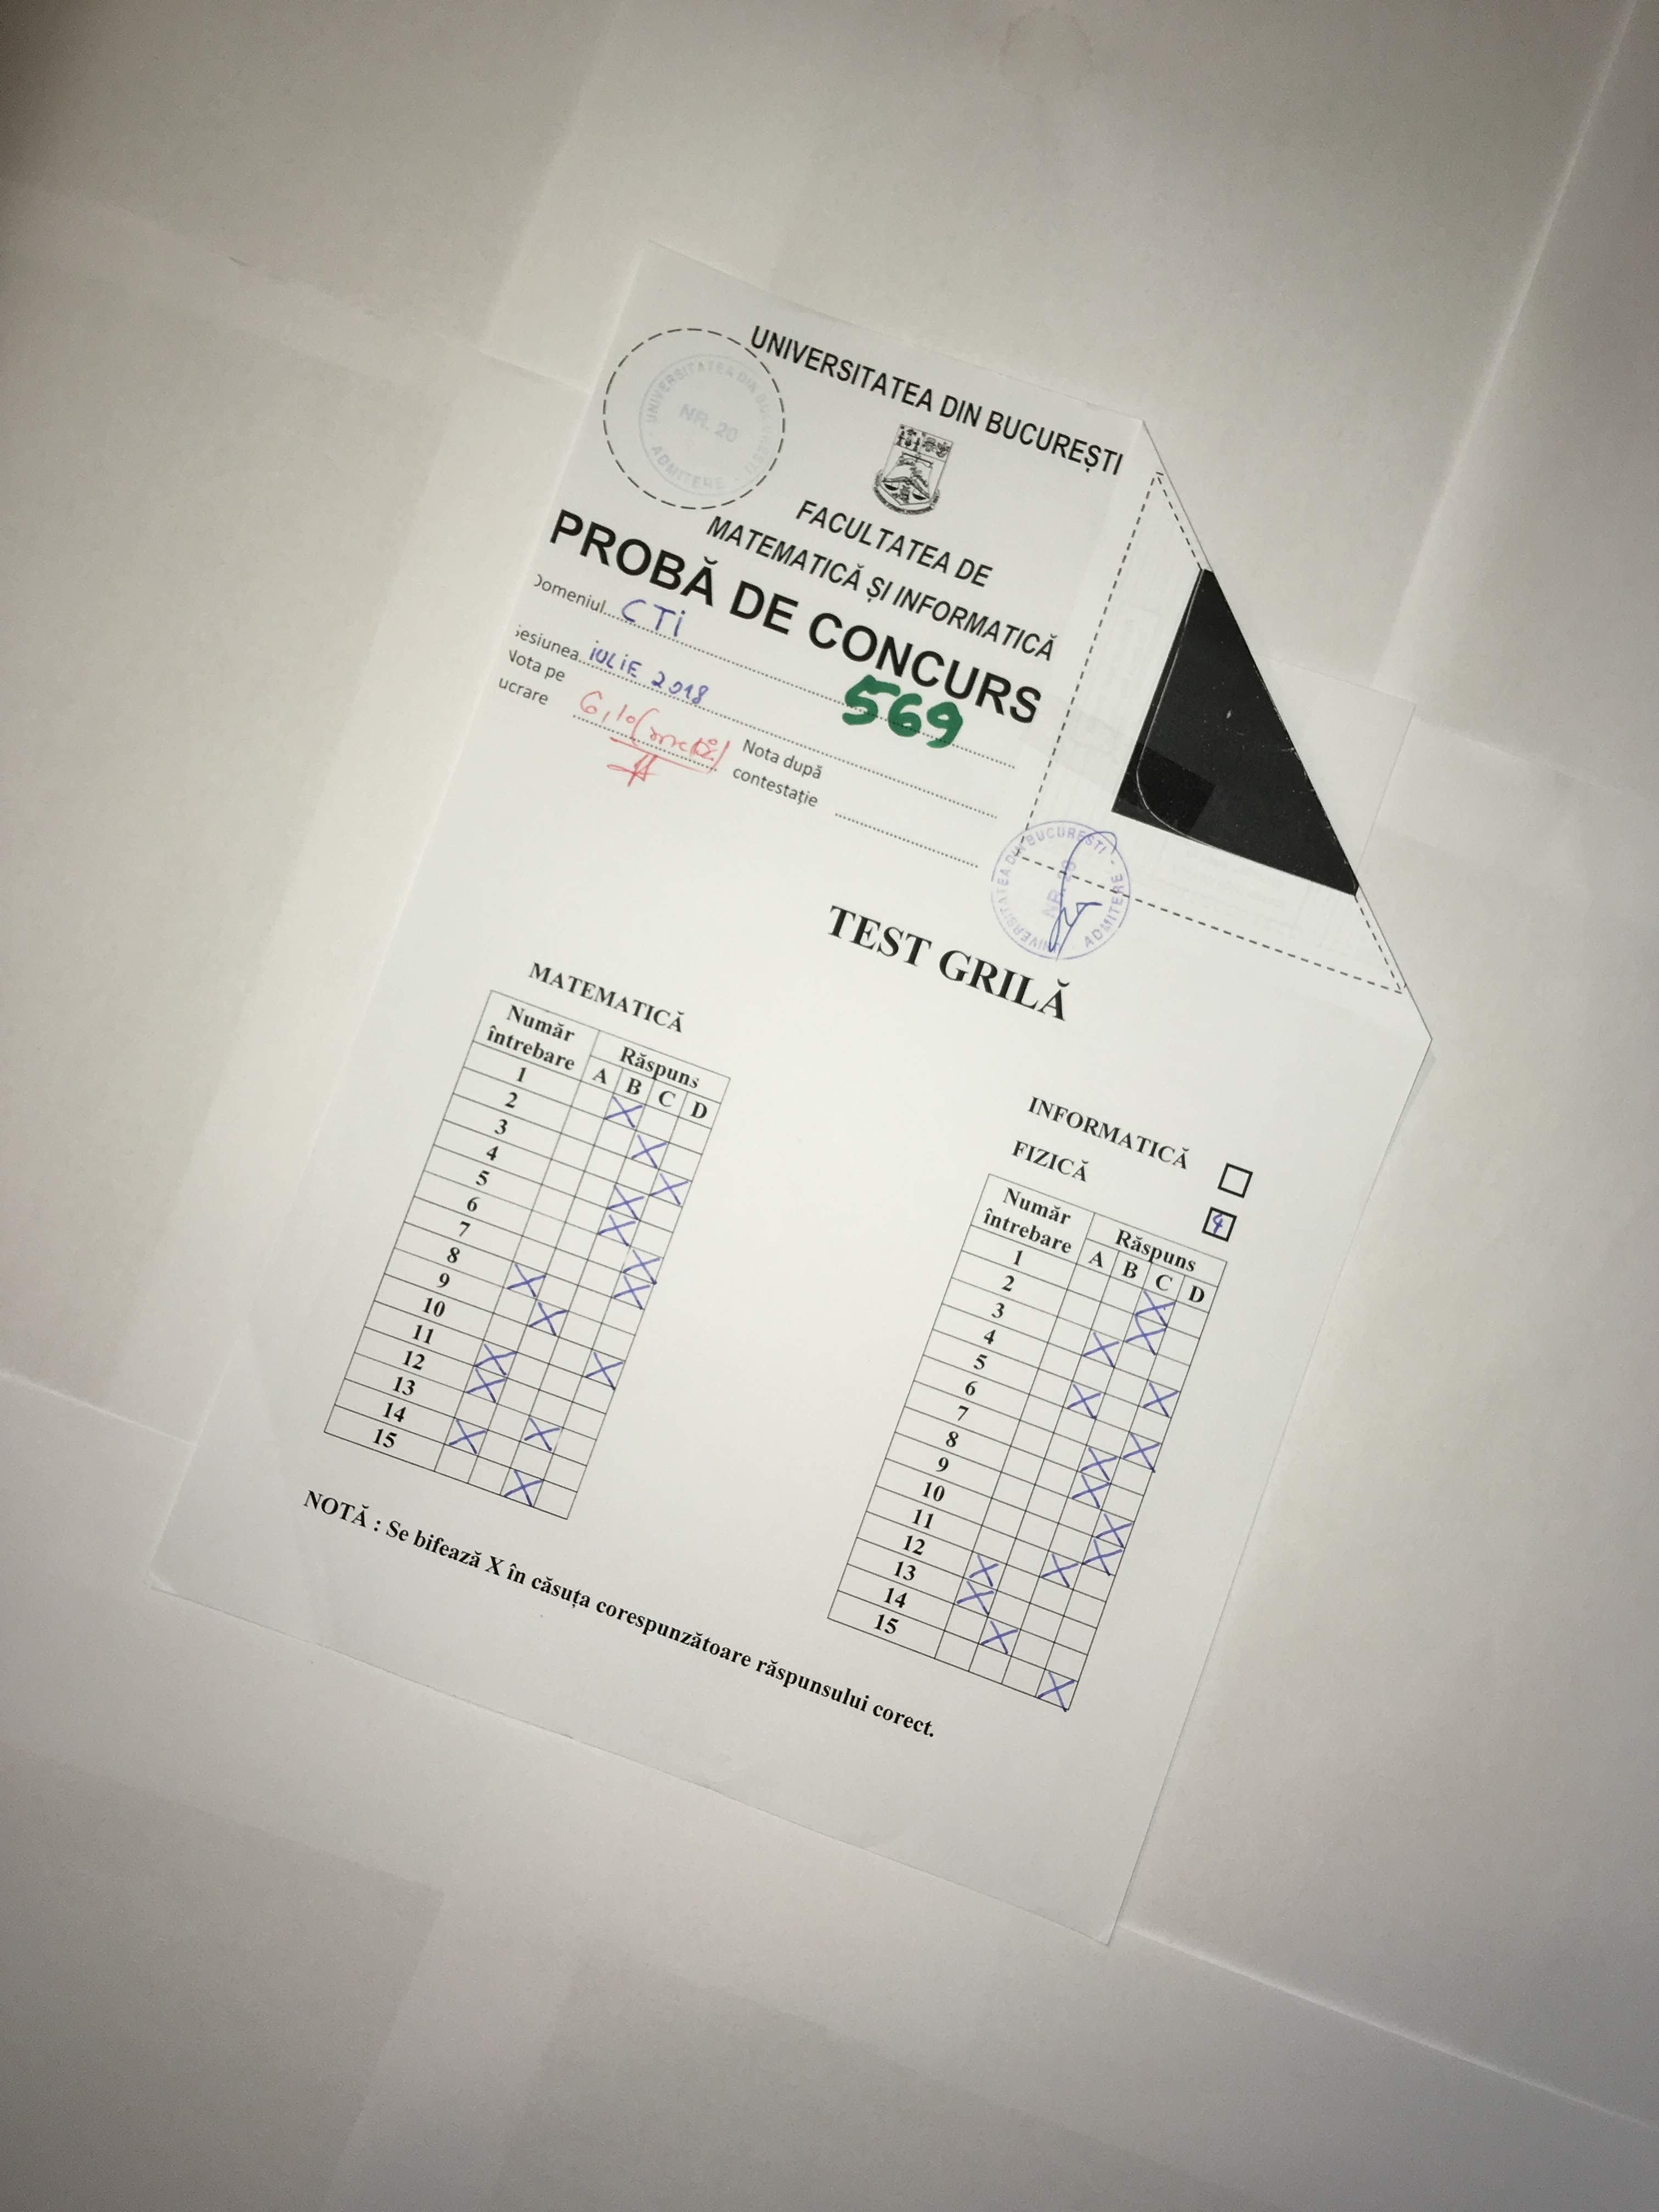 UNIVERSITATEA DIN BUCUREȘTI
UNIVERSITATEA DIN BUCUREȘTI · ADMITERE ·
NR. 20
FACULTATEA DE
MATEMATICĂ ȘI INFORMATICĂ
PROBĂ DE CONCURS
Domeniul CTi
569
Sesiunea iULiE 2018
Nota pe
lucrare 6,10
Nota după
contestație
UNIVERSITATEA DIN BUCUREȘTI · ADMITERE
NR. 20
TEST GRILĂ
MATEMATICĂ
Număr întrebare Răspuns
A B C D
1 X
2 X
3 X
4 X
5 X
6 X
7 X
8 X
9 X
10 X
11 X
12 X
13 X
14 X
15 X
INFORMATICĂ
FIZICĂ
Număr întrebare Răspuns
A B C D
1 X
2 X
3 X
4 X
5 X
6 X
7 X
8 X
9 X
10 X
11 X
12 X
13 X
14 X
15 X
NOTĂ : Se bifează X în căsuța corespunzătoare răspunsului corect.